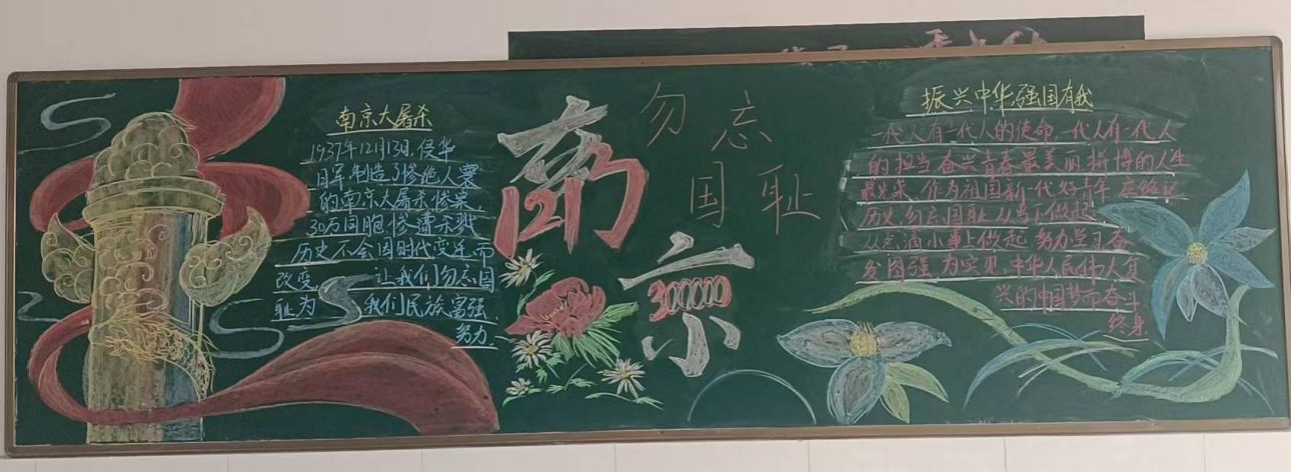 南京大屠杀
1937年12月13日，侵华
日军制造了惨绝人寰
的南京大屠杀惨案，
30万同胞惨遭杀戮
历史不会因时代变迁而
改变，让我们勿忘国
耻为我们民族富强
努力
南
121
京
300000
勿忘
国耻
振兴中华，强国有我
一代人有一代人的使命，一代人有一代人
的担当，奋兴青春最美丽，拼博的人生
最精采，作为祖国新一代好青年，应铭记
历史，勿忘国耻，从当下做起，
从点滴小事上做起，努力学习，奋
发图强，为实现中华人民伟大复
兴的中国梦而奋斗
终身